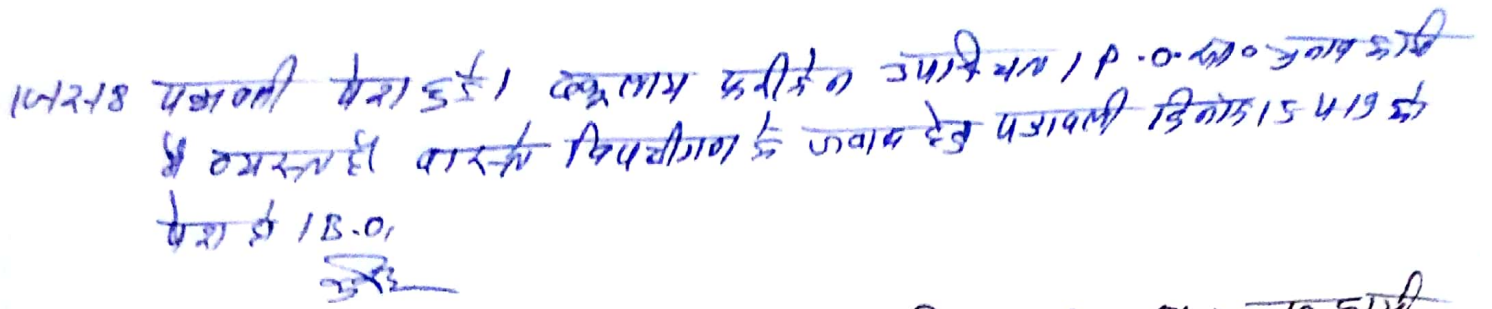 पत्रावली पेश हुई। वकूलाय फरीकेन उपस्थित। P.O. सा० चुनाव कार्य
में व्यस्त है। वास्ते विपक्षीगण के जवाब हेतु पत्रावली दिनांक 15 4 19 को
पेश हो। B.O.